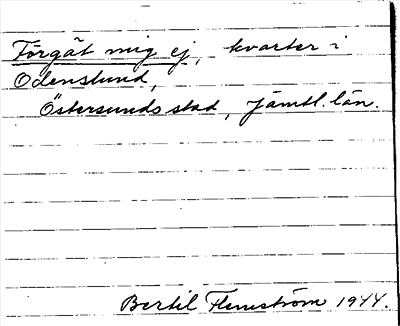 Förgät mig ej, kvarter i
Odenslund,
Östersunds stad, Jämtl. län.
Bertil Flemström 1944.